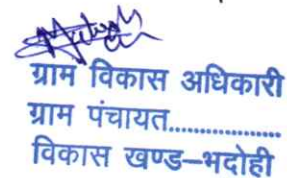 ग्राम विकास अधिकारी
ग्राम पंचायत..................
विकास खण्ड–भदोही